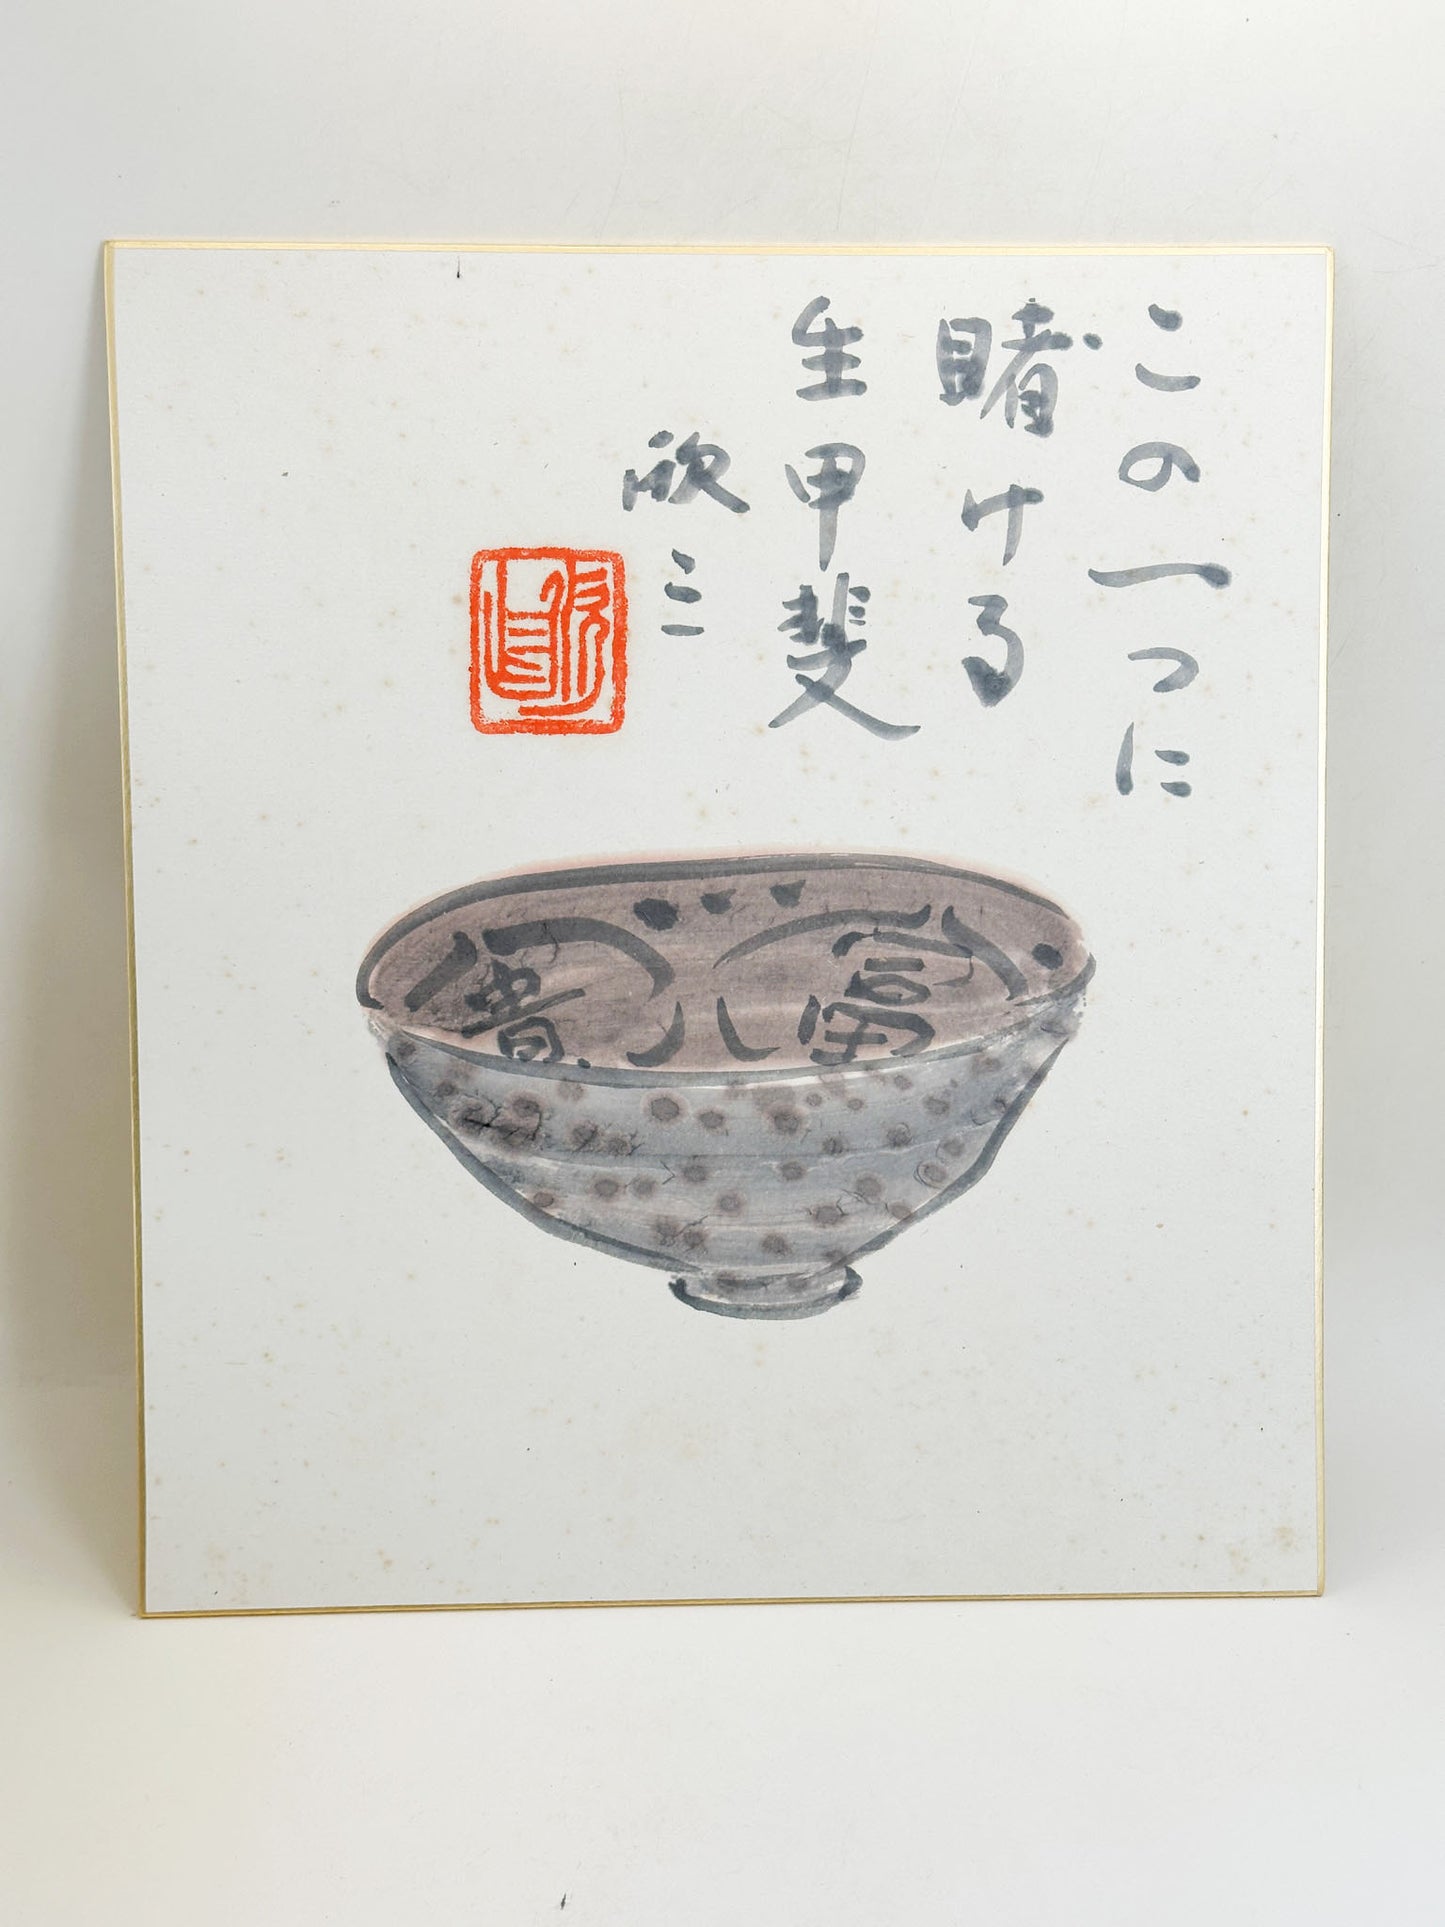 この一つに
賭ける
生甲斐
欣三
富貴